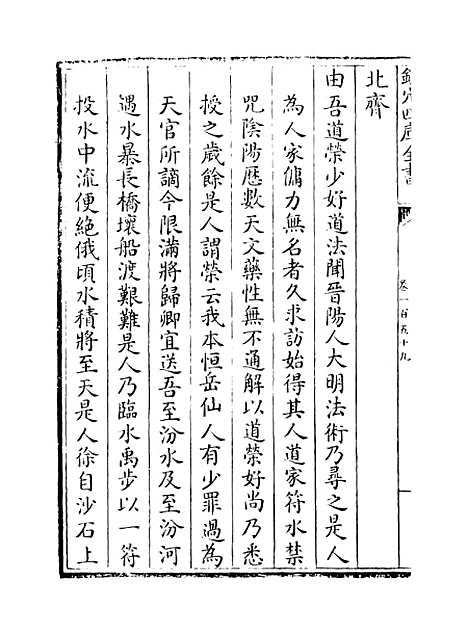 欽定四庫全書
卷一百五十九
北齊
由吾道榮少好道法聞晉陽人大明法術乃尋之是人
為人家傭力無名者久求訪始得其人道家符水禁
咒陰陽歷數天文藥性無不通解以道榮好尚乃悉
授之歲餘是人謂榮云我本恒岳仙人有少罪過為
天官所謫今限滿將歸卿宜送吾至汾水及至汾河
遇水暴長橋壞船渡艱難是人乃臨水禹步以一符
投水中流便絕俄頃水積將至天是人徐自沙石上